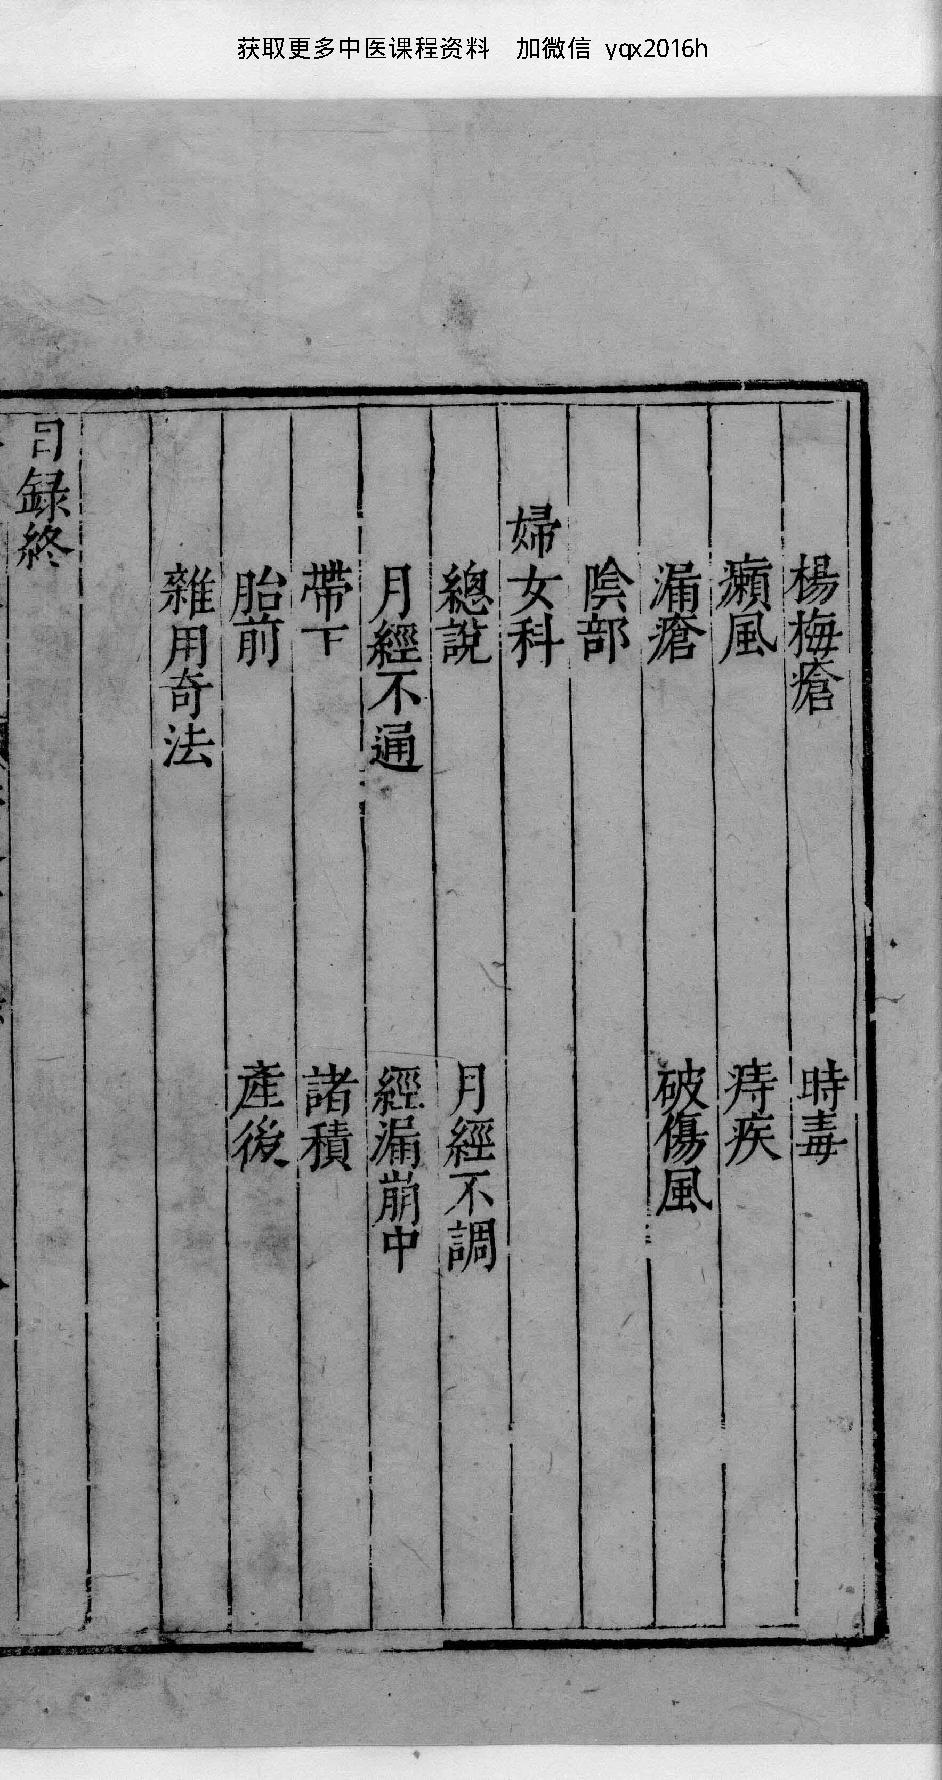 获取更多中医课程资料 加微信 yqx2016h
楊梅瘡 時毒
癩風 痔疾
漏瘡 破傷風
陰部
婦女科
總說 月經不調
月經不通 經漏崩中
帶下 諸積
胎前 產後
雜用奇法
目録終